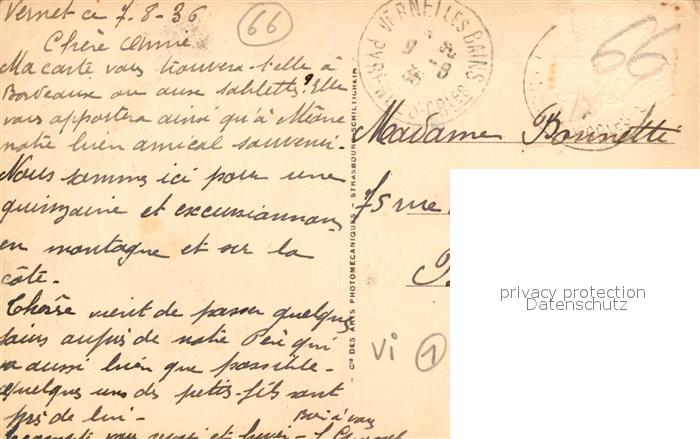 Vernet ce 7-8-36
66
Chère Amie
Ma carte vous trouvera-t-elle à
Bordeaux ou aux Sablettes? Elle
vous apportera ainsi qu'à
notre bien amical souvenir.
Nous sommes ici pour une
quinzaine et excursionnons
en montagne et sur la
côte.
vient de passer quelques
jours auprès de notre Père qui
va aussi bien que possible.
Quelques uns des petits-fils sont
près de lui-
Bien à vous
VERNET LES BAINS
66
Madame Bonnetti
75 rue
Cie DES ARTS PHOTOMÉCANIQUES - STRASBOURG-SCHILTIGHEIM
privacy protection
Datenschutz
Vi 1